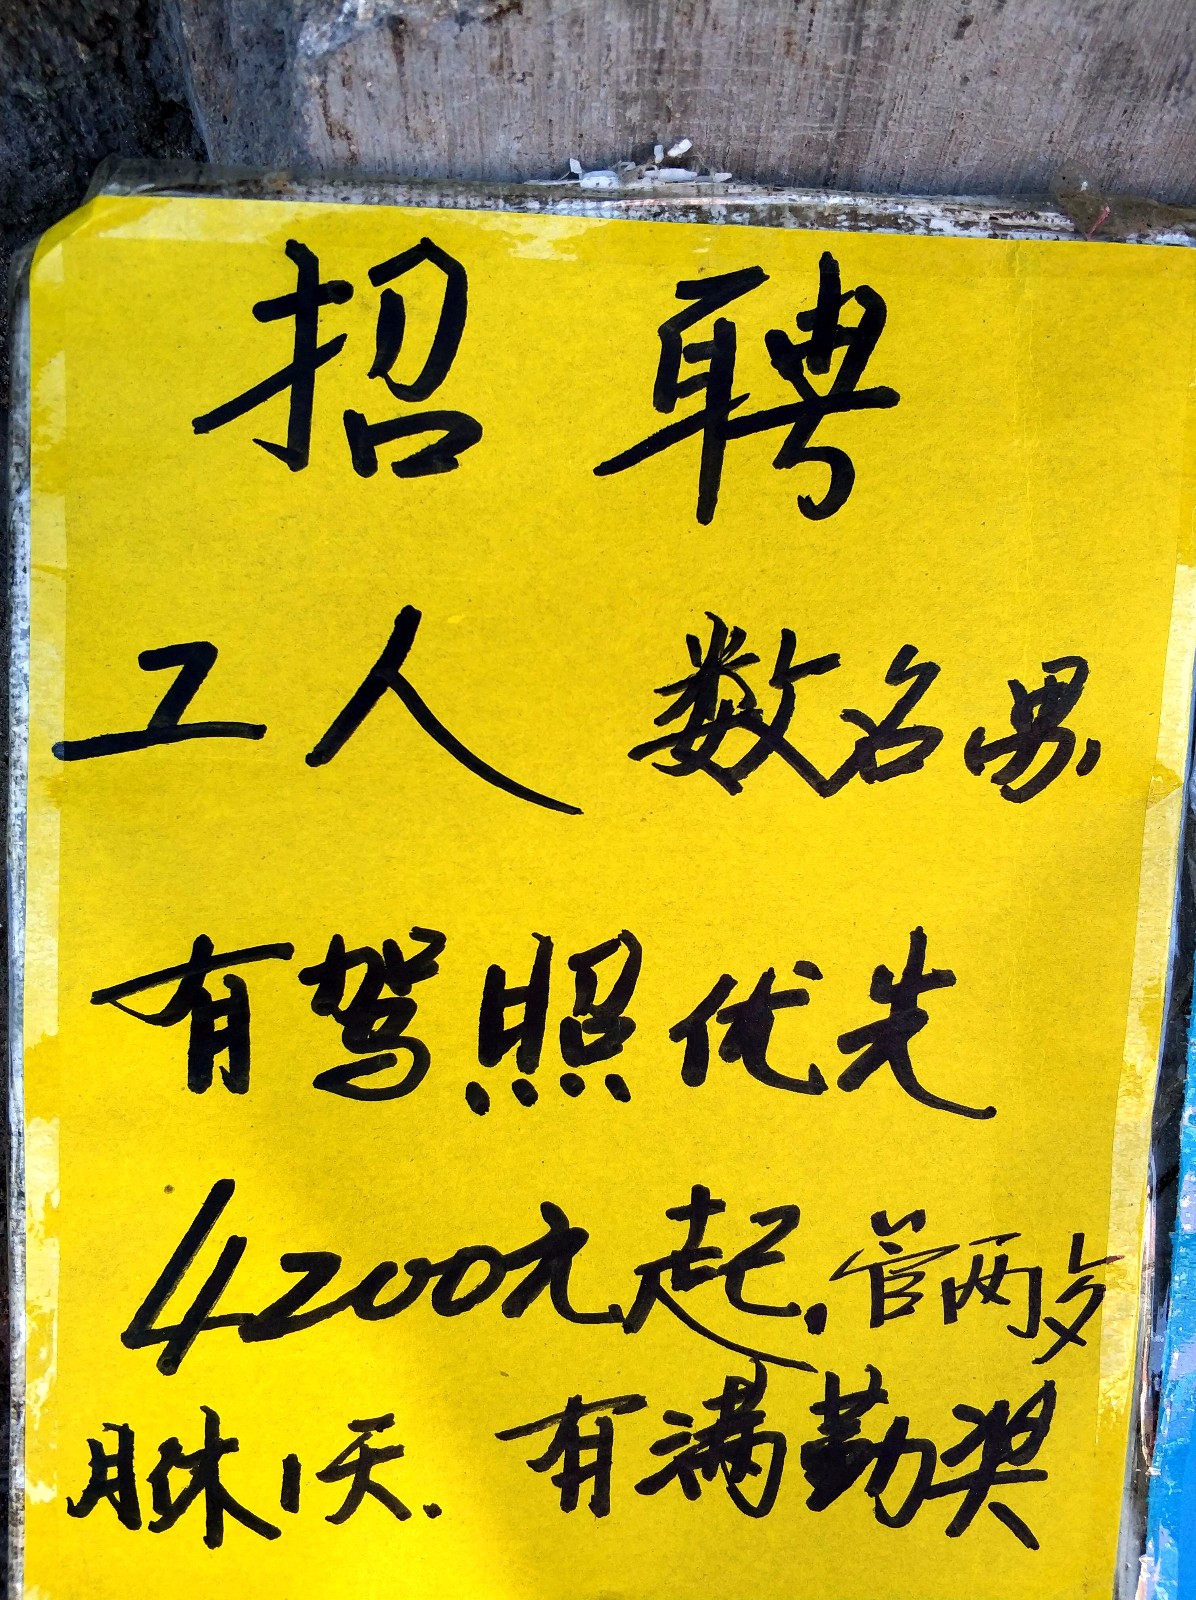 招聘
工人 数名男.
有驾照优先
4200元起.管两歺
月休1天. 有满勤奖